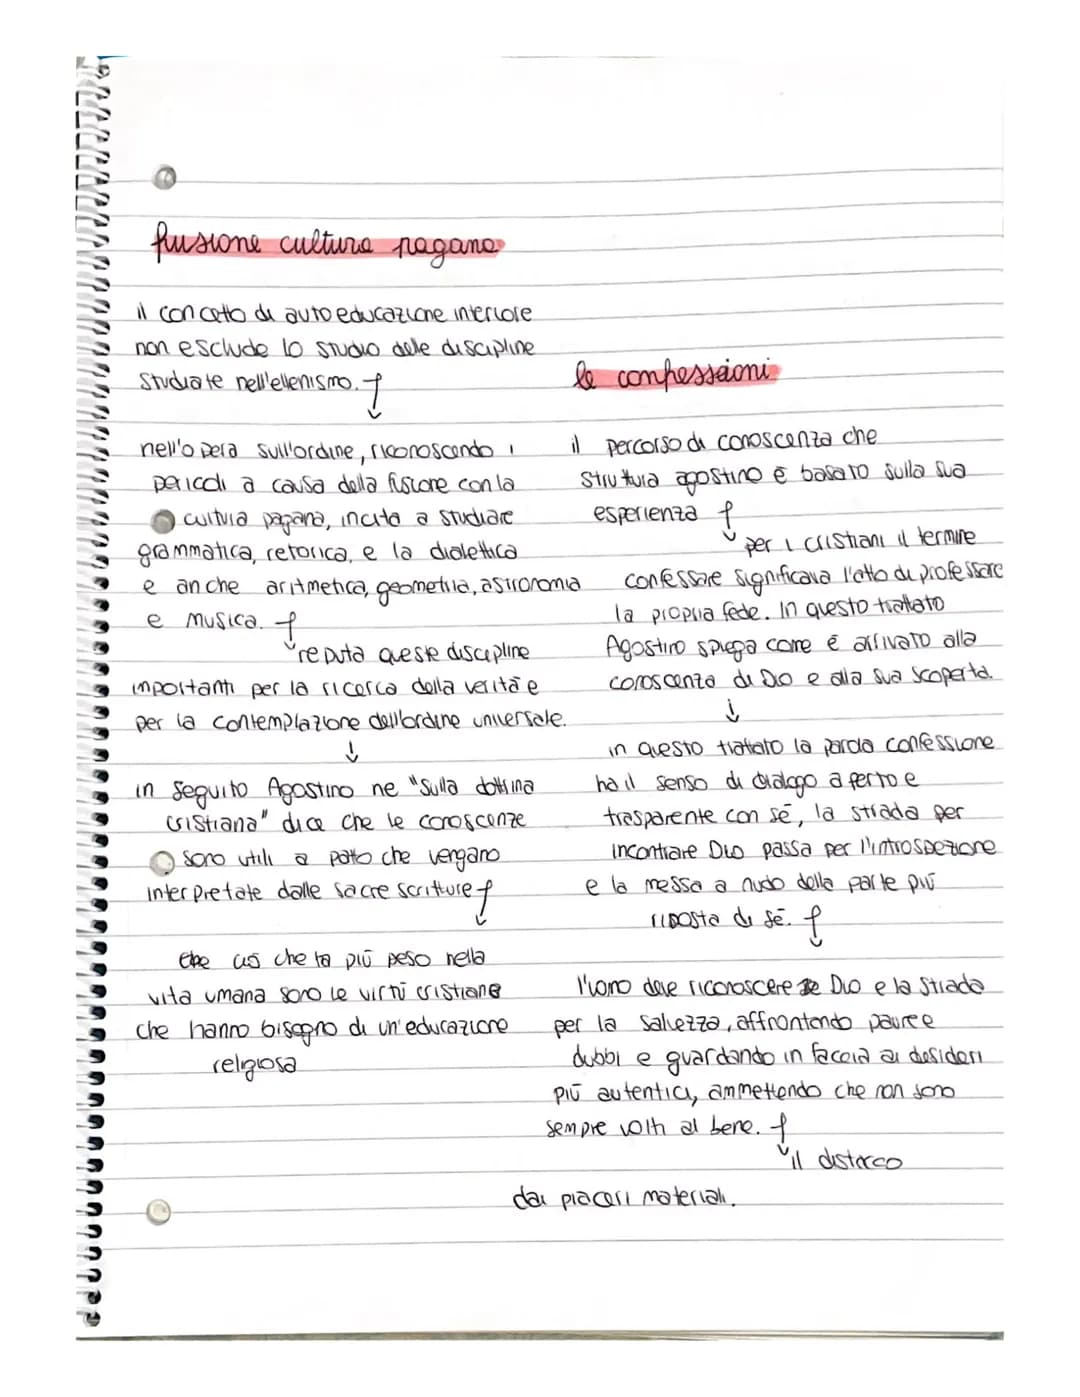 fusione cultura pagana
il concetto di autoeducazione interiore
non esclude lo studio delle discipline
studiate nell'ellenismo.
↓
nell'opera sull'ordine, riconoscendo i
pericoli a causa della fusione con la
cultura pagana, incita a studiare
grammatica, retorica, e la dialettica
e anche aritmetica, geometria, astronomia
e musica.
↓
reputa queste discipline
importanti per la ricerca della verità e
per la contemplazione dell'ordine universale.
↓
in seguito Agostino ne "Sulla dottrina
cristiana" dice che le conoscenze
sono utili a patto che vengano
interpretate dalle sacre scritture
↓
ciò che ha più peso nella
vita umana sono le virtù cristiane
che hanno bisogno di un'educazione
religiosa
le confessioni
il percorso di conoscenza che
struttura agostino è basato sulla sua
esperienza
↓
per i cristiani il termine
confessare significava l'atto di professare
la propria fede. In questo trattato
Agostino spiega come è arrivato alla
conoscenza di Dio e alla sua scoperta.
↓
in questo trattato la parola confessione
ha il senso di dialogo aperto e
trasparente con sé, la strada per
incontrare Dio passa per l'introspezione
e la messa a nudo della parte più
riposta di sé.
↓
l'uomo deve riconoscere Dio e la strada
per la salvezza, affrontando paure e
dubbi e guardando in faccia ai desideri
più autentici, ammettendo che non sono
sempre volti al bene.
↓
il distacco
dai piaceri materiali.